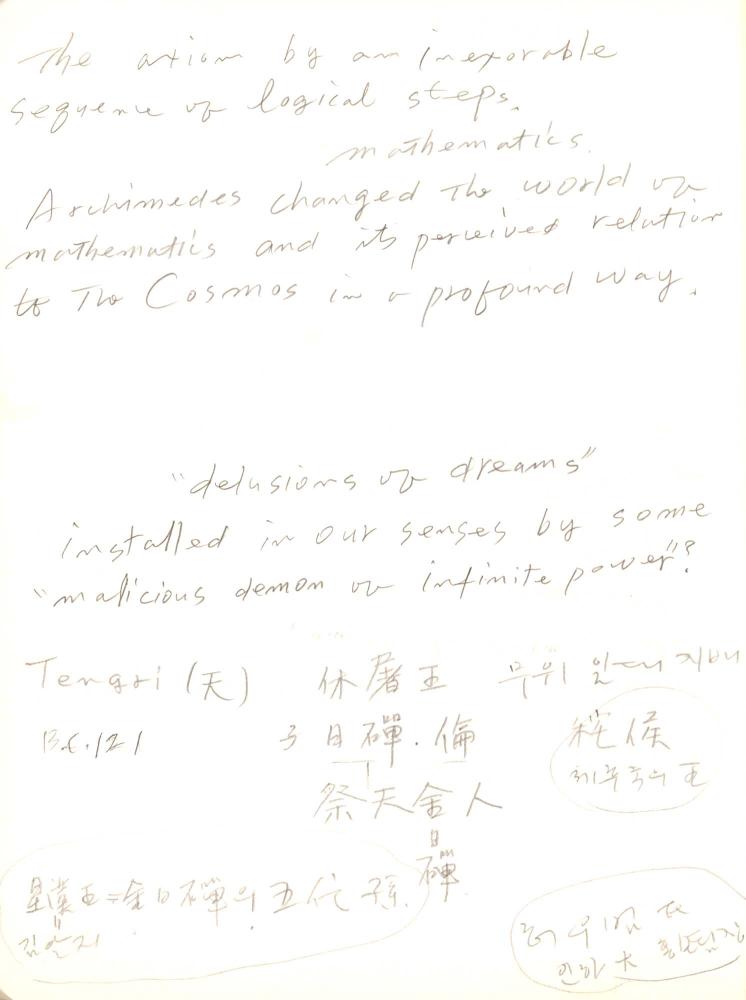 The axiom by an inexorable
sequence of logical steps.
mathematics.
Archimedes changed the world of
mathematics and its perceived relation
to The Cosmos in a profound way.
"delusions of dreams"
installed in our senses by some
"malicious demon of infinite power"?
Tengri (天) 休屠王 무위 일대 지배
B.C.121 子 日磾. 倫 秺侯
王
祭天金人
日
磾
星漢王=金日磾의 五代 孫.
김알지
인하大